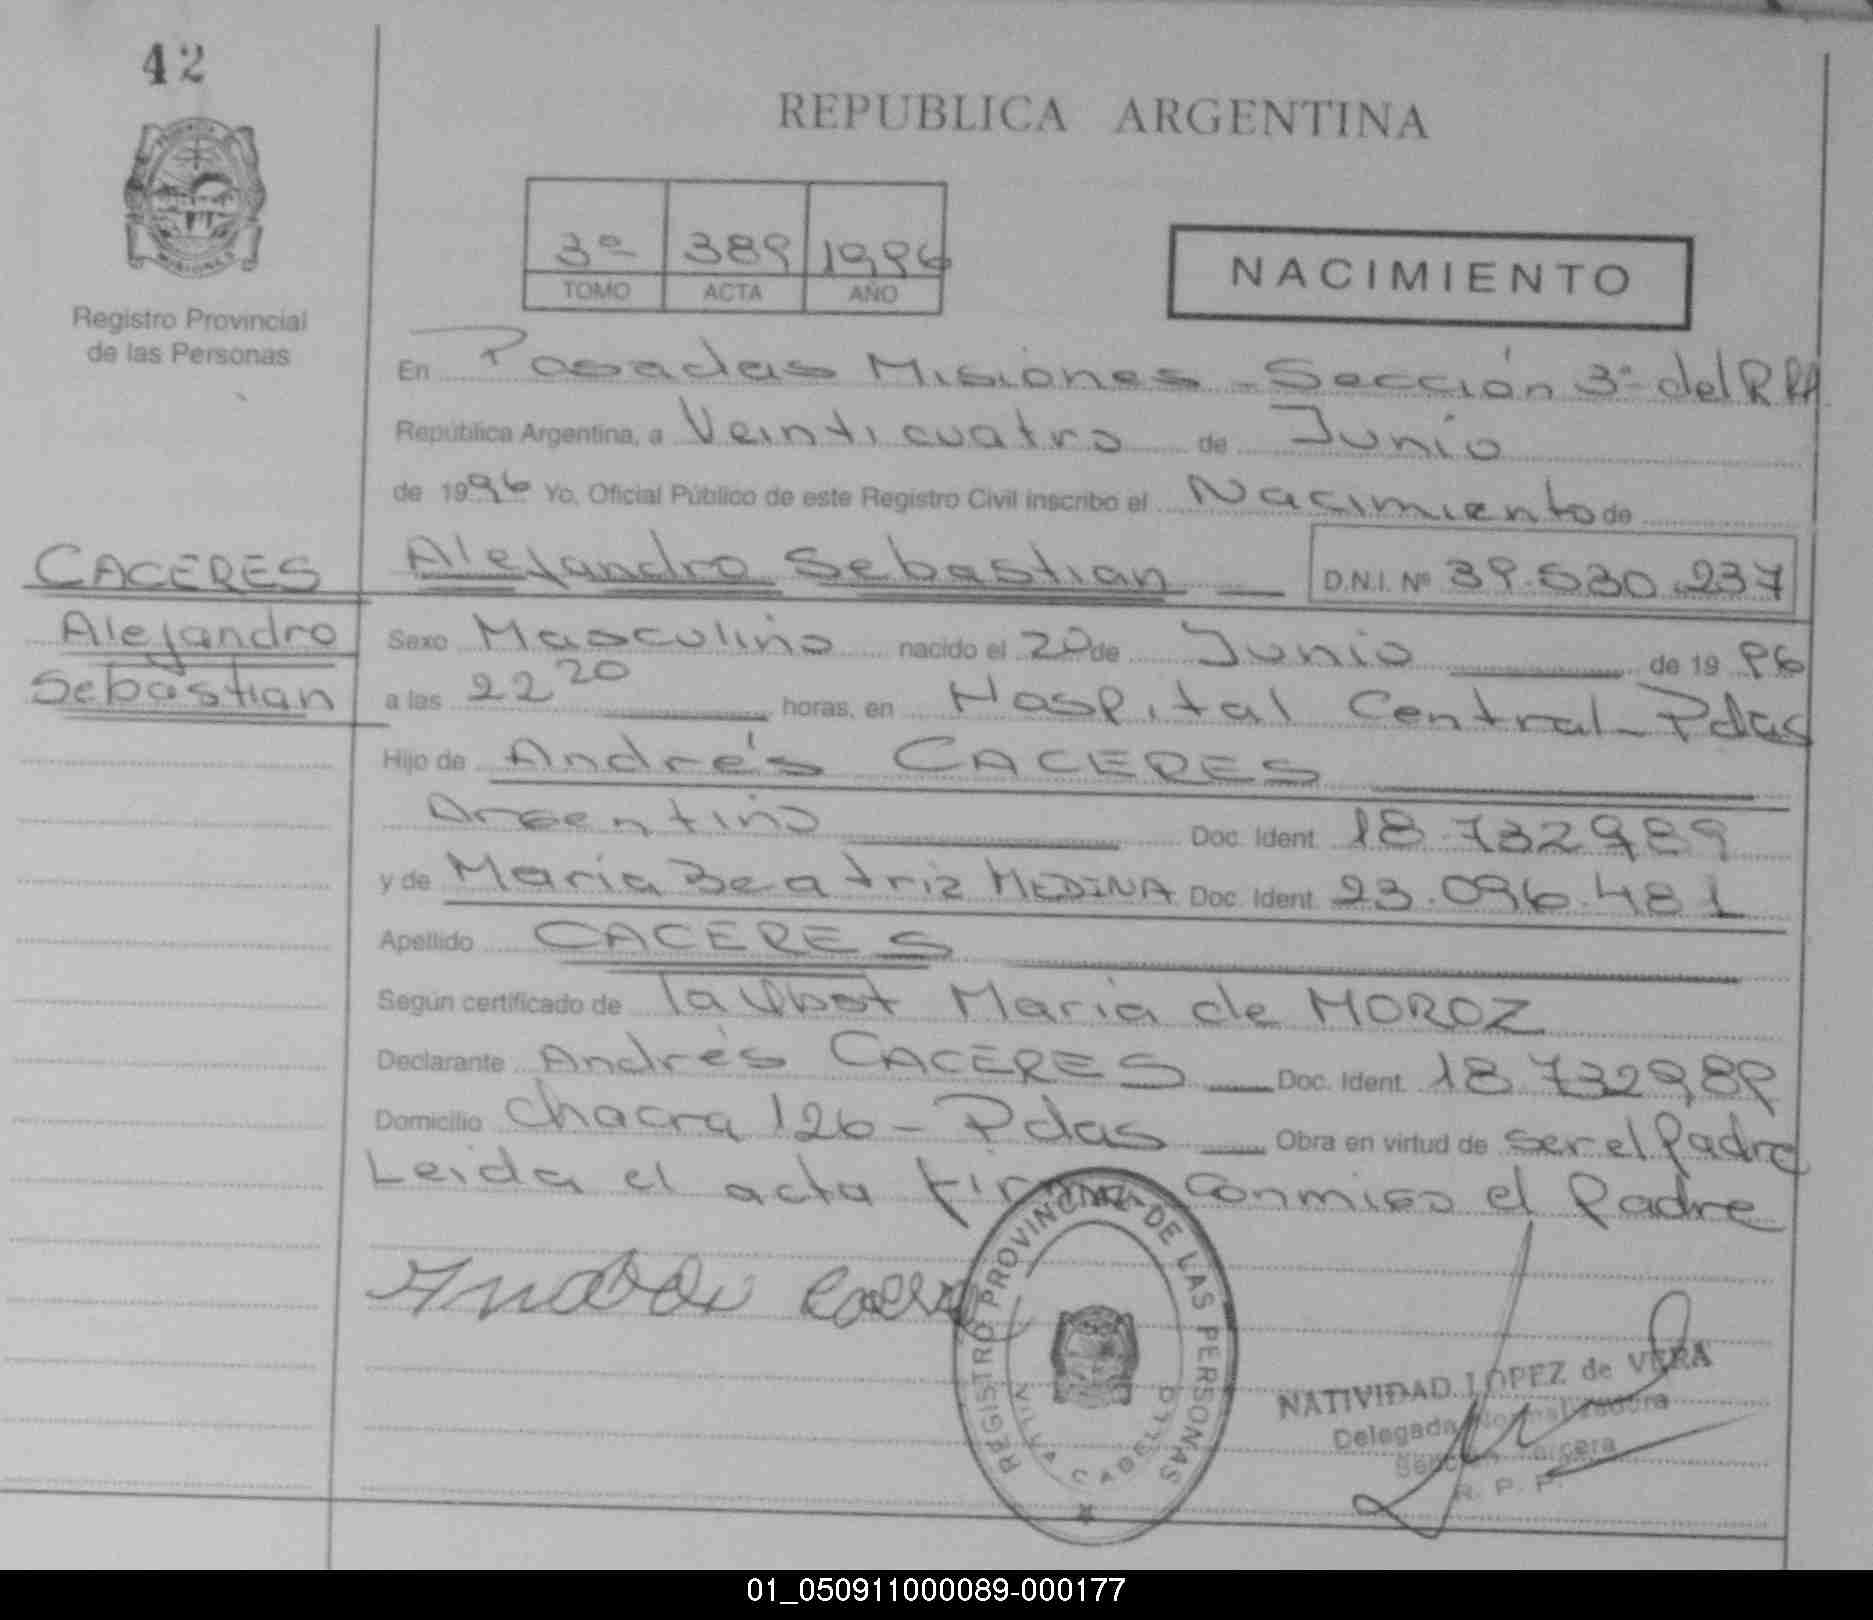 42
REPUBLICA ARGENTINA
3º 389 1996
TOMO ACTA AÑO
NACIMIENTO
MISIONES
Registro Provincial
de las Personas
En Posadas Misiones - Sección 3º del RPP
República Argentina, a Veinticuatro de Junio
de 1996 Yo, Oficial Público de este Registro Civil inscribo el Nacimiento de
CACERES
Alejandro
Sebastian
Alejandro Sebastian D.N.I. Nº 39.530.237
Sexo Masculino nacido el 20 de Junio de 1996
a las 22 20 horas, en Hospital Central - Pdas
Hijo de Andrés CACERES
Argentino Doc. Ident. 18.732989
y de Maria Beatriz MEDINA Doc. Ident. 23.096.481
Apellido CACERES
Según certificado de la Obst Maria de MOROZ
Declarante Andrés CACERES Doc. Ident. 18.732989
Domicilio Chacra 126 - Pdas Obra en virtud de ser el Padre
Leida el acta firma conmigo el Padre
REGISTRO PROVINCIAL DE LAS PERSONAS
VILLA CABELLO
NATIVIDAD LOPEZ de VERA
Delegada Normalizadora
Sección Tercera
R. P. P.
01_050911000089-000177